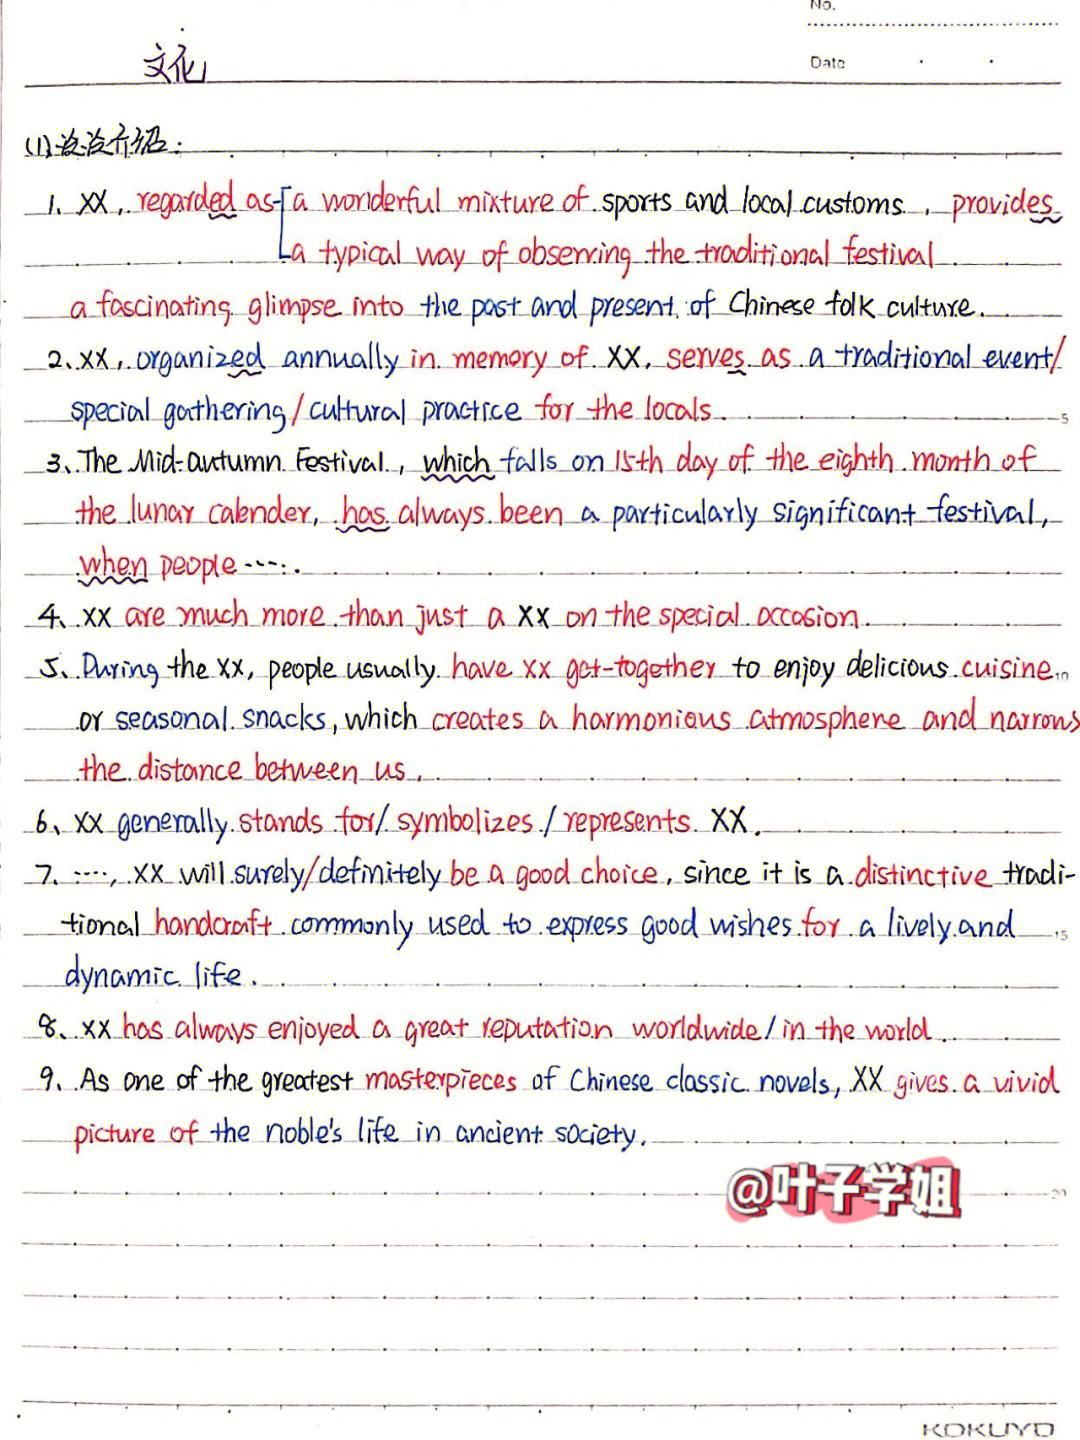 No.
Date
文化
(1)泛泛介绍:
1. XX, regarded as a wonderful mixture of sports and local customs, provides
a typical way of observing the traditional festival
a fascinating glimpse into the past and present of Chinese folk culture.
2、XX, organized annually in memory of XX, serves as a traditional event/
special gathering/cultural practice for the locals.
5
3、The Mid-autumn Festival, which falls on 15th day of the eighth month of
the lunar calender, has always been a particularly significant festival,
when people ······
4、XX are much more than just a XX on the special occasion.
5、During the XX, people usually have XX get-together to enjoy delicious cuisine
10
or seasonal snacks, which creates a harmonious atmosphere and narrows
the distance between us.
6、XX generally stands for/symbolizes/represents XX.
7. ····, XX will surely/definitely be a good choice, since it is a distinctive tradi-
tional handcraft commonly used to express good wishes for a lively and
15
dynamic life.
8、XX has always enjoyed a great reputation worldwide/in the world.
9、As one of the greatest masterpieces of Chinese classic novels, XX gives a vivid
picture of the noble's life in ancient society.
@叶子学姐
20
KOKUYO